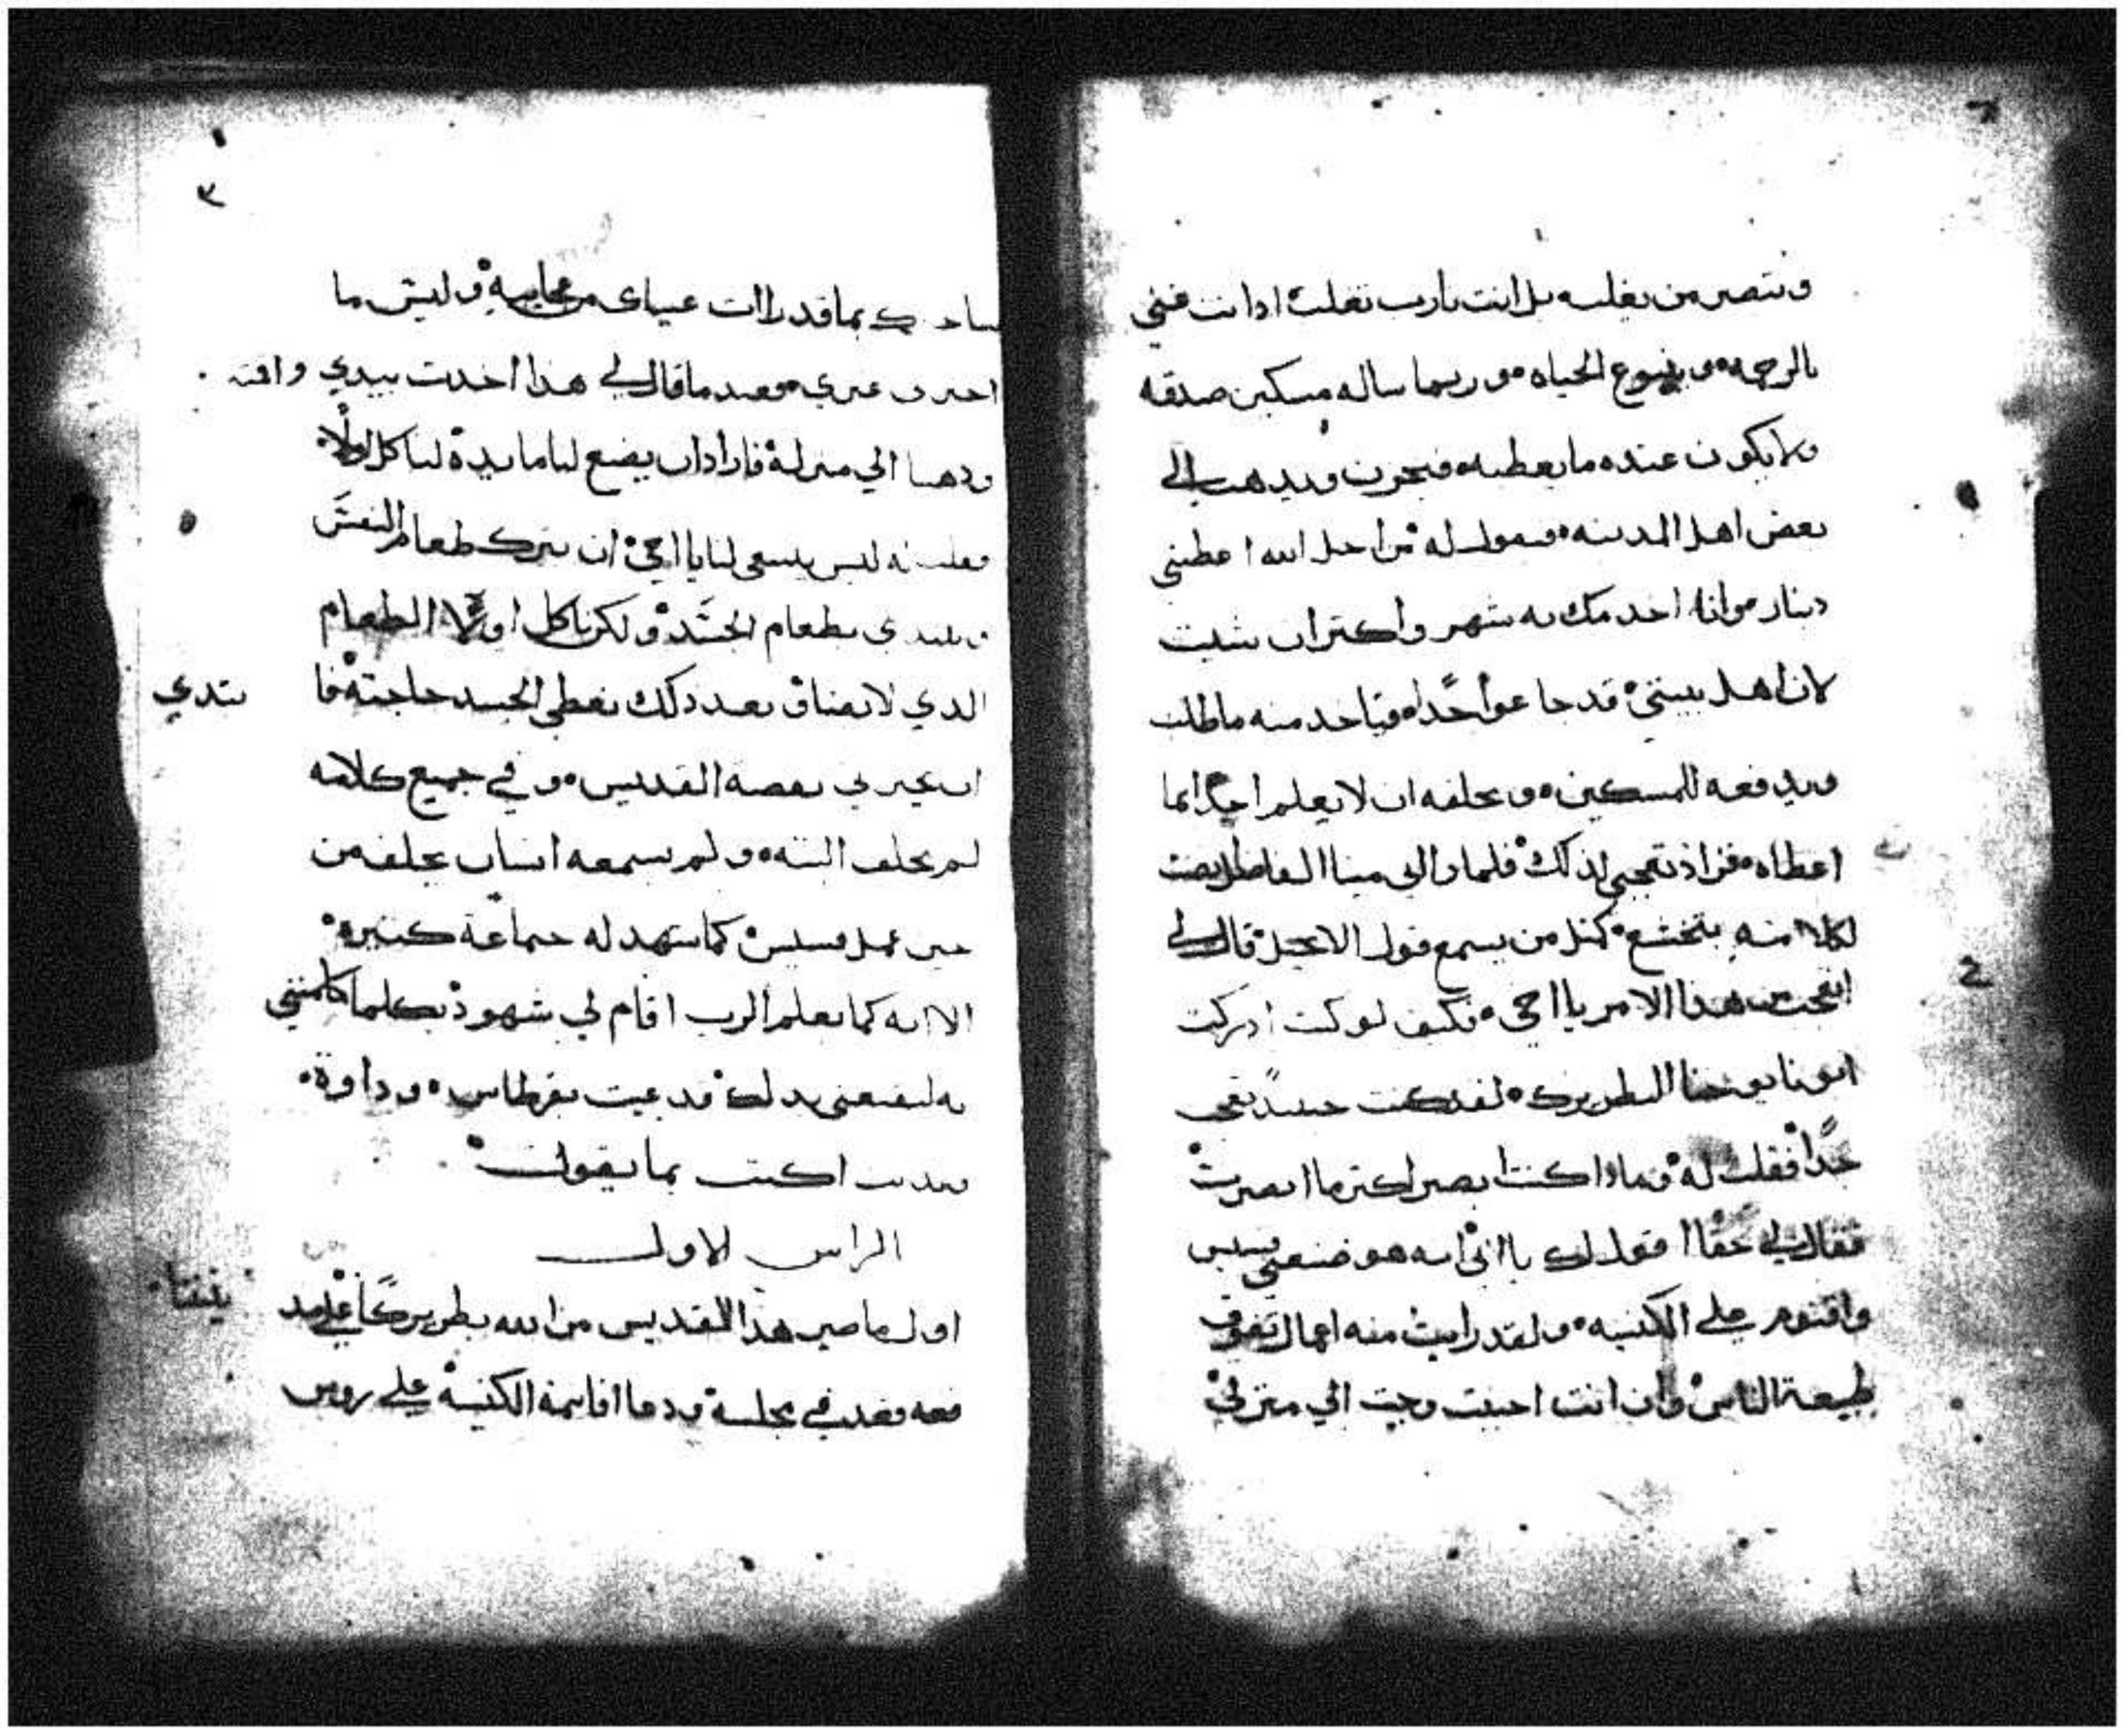 وتتصر من بفلسه بل انت يارب تفلت ادا نت غني
بالرحمه وينبوع الحياه وربما ساله مسكين صدقه
ولا يكون عنده ما يعطيه فيحزن ويدهب الي
بعض اهل المدينه فيقول له من اجل الله اعطيني
دينار وانا اخدمك به شهر واكتر ان شيت
لان اهل بيتي قد جاعوا جدا فياخد منه ما طلب
ويدفعه للمسكين ويحلفه ان لا يعلم احدا بما
اعطاه فزاد تعجبي لذلك فلما راني مينا الفاضل بصت
لكلامه بتخشع كمثل من يسمع قول الانجيل قال لي
اتعجبت من هذا الامر يا اخي فكيف لو كنت ادركت
ابونا يوحنا البطريرك لقد كنت حينيد تعجب
جدا فقلت له وماذا كنت ابصر اكتر ما ابصرت
فقال لي حقا اقول لك يا اخي انه هو صنعني قسيس
واقنوم علي الكنيسه ولقد رايت منه اعمال تفوق
طبيعة الناس وان انت احببت وجيت الي منزلي
٣
بما قد راات عيناي من عجايبه وليس ما
اخبرني غيري فعند ما قال لي هذا اخدت بيدي واقته
ودهبنا الي منزله فاراد ان يضع لنا مايدة لناكل اولا
فقلت له ليس ينبغي لنا يا اخي ان نترك طعام النفس
ونبتدي بطعام الجسد ولكن ناكل اولا الطعام
الدي لا يفنا وبعد دلك نعطي الجسد حاجته فا
بتدي
ان يخبرني بقصة القديس وفي جميع كلامه
لم يحلف البته ولم يسمعه انسان يحلف من
حين عمل قسيس كما شهد له جماعة كتيرة
الا انه كما يعلم الرب اقام لي شهود بكلما كلمني
به لينفعني بدلك فدعيت بقرطاس وداوة
وبديت اكتب بما يقول
الراس الاول
اول ما صير هذا القديس من الله بطريركا علي مد
ينتنا
فعه فقعد في مجلسه ودعا اقانمة الكنيسه علي روس